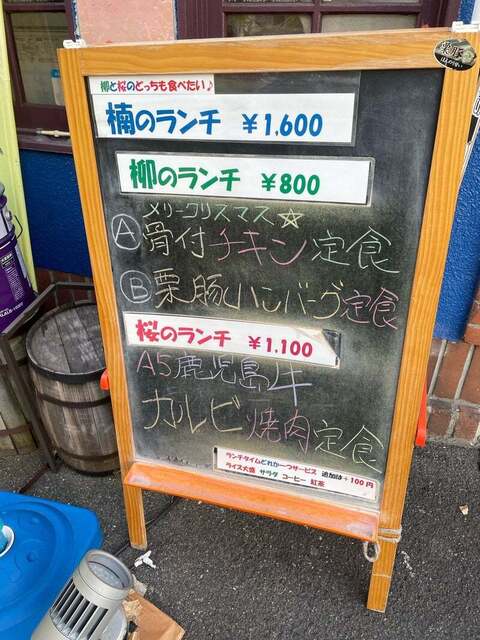 柳と桜のどっちも食べたい♪
楠のランチ ￥1,600
柳のランチ ￥800
メリークリスマス☆
Ⓐ骨付チキン定食
Ⓑ栗豚ハンバーグ定食
桜のランチ ￥1,100
A5鹿児島牛
カルビ焼肉定食
ランチタイムどれか一つサービス 追加は＋100円
ライス大盛 サラダ コーヒー 紅茶